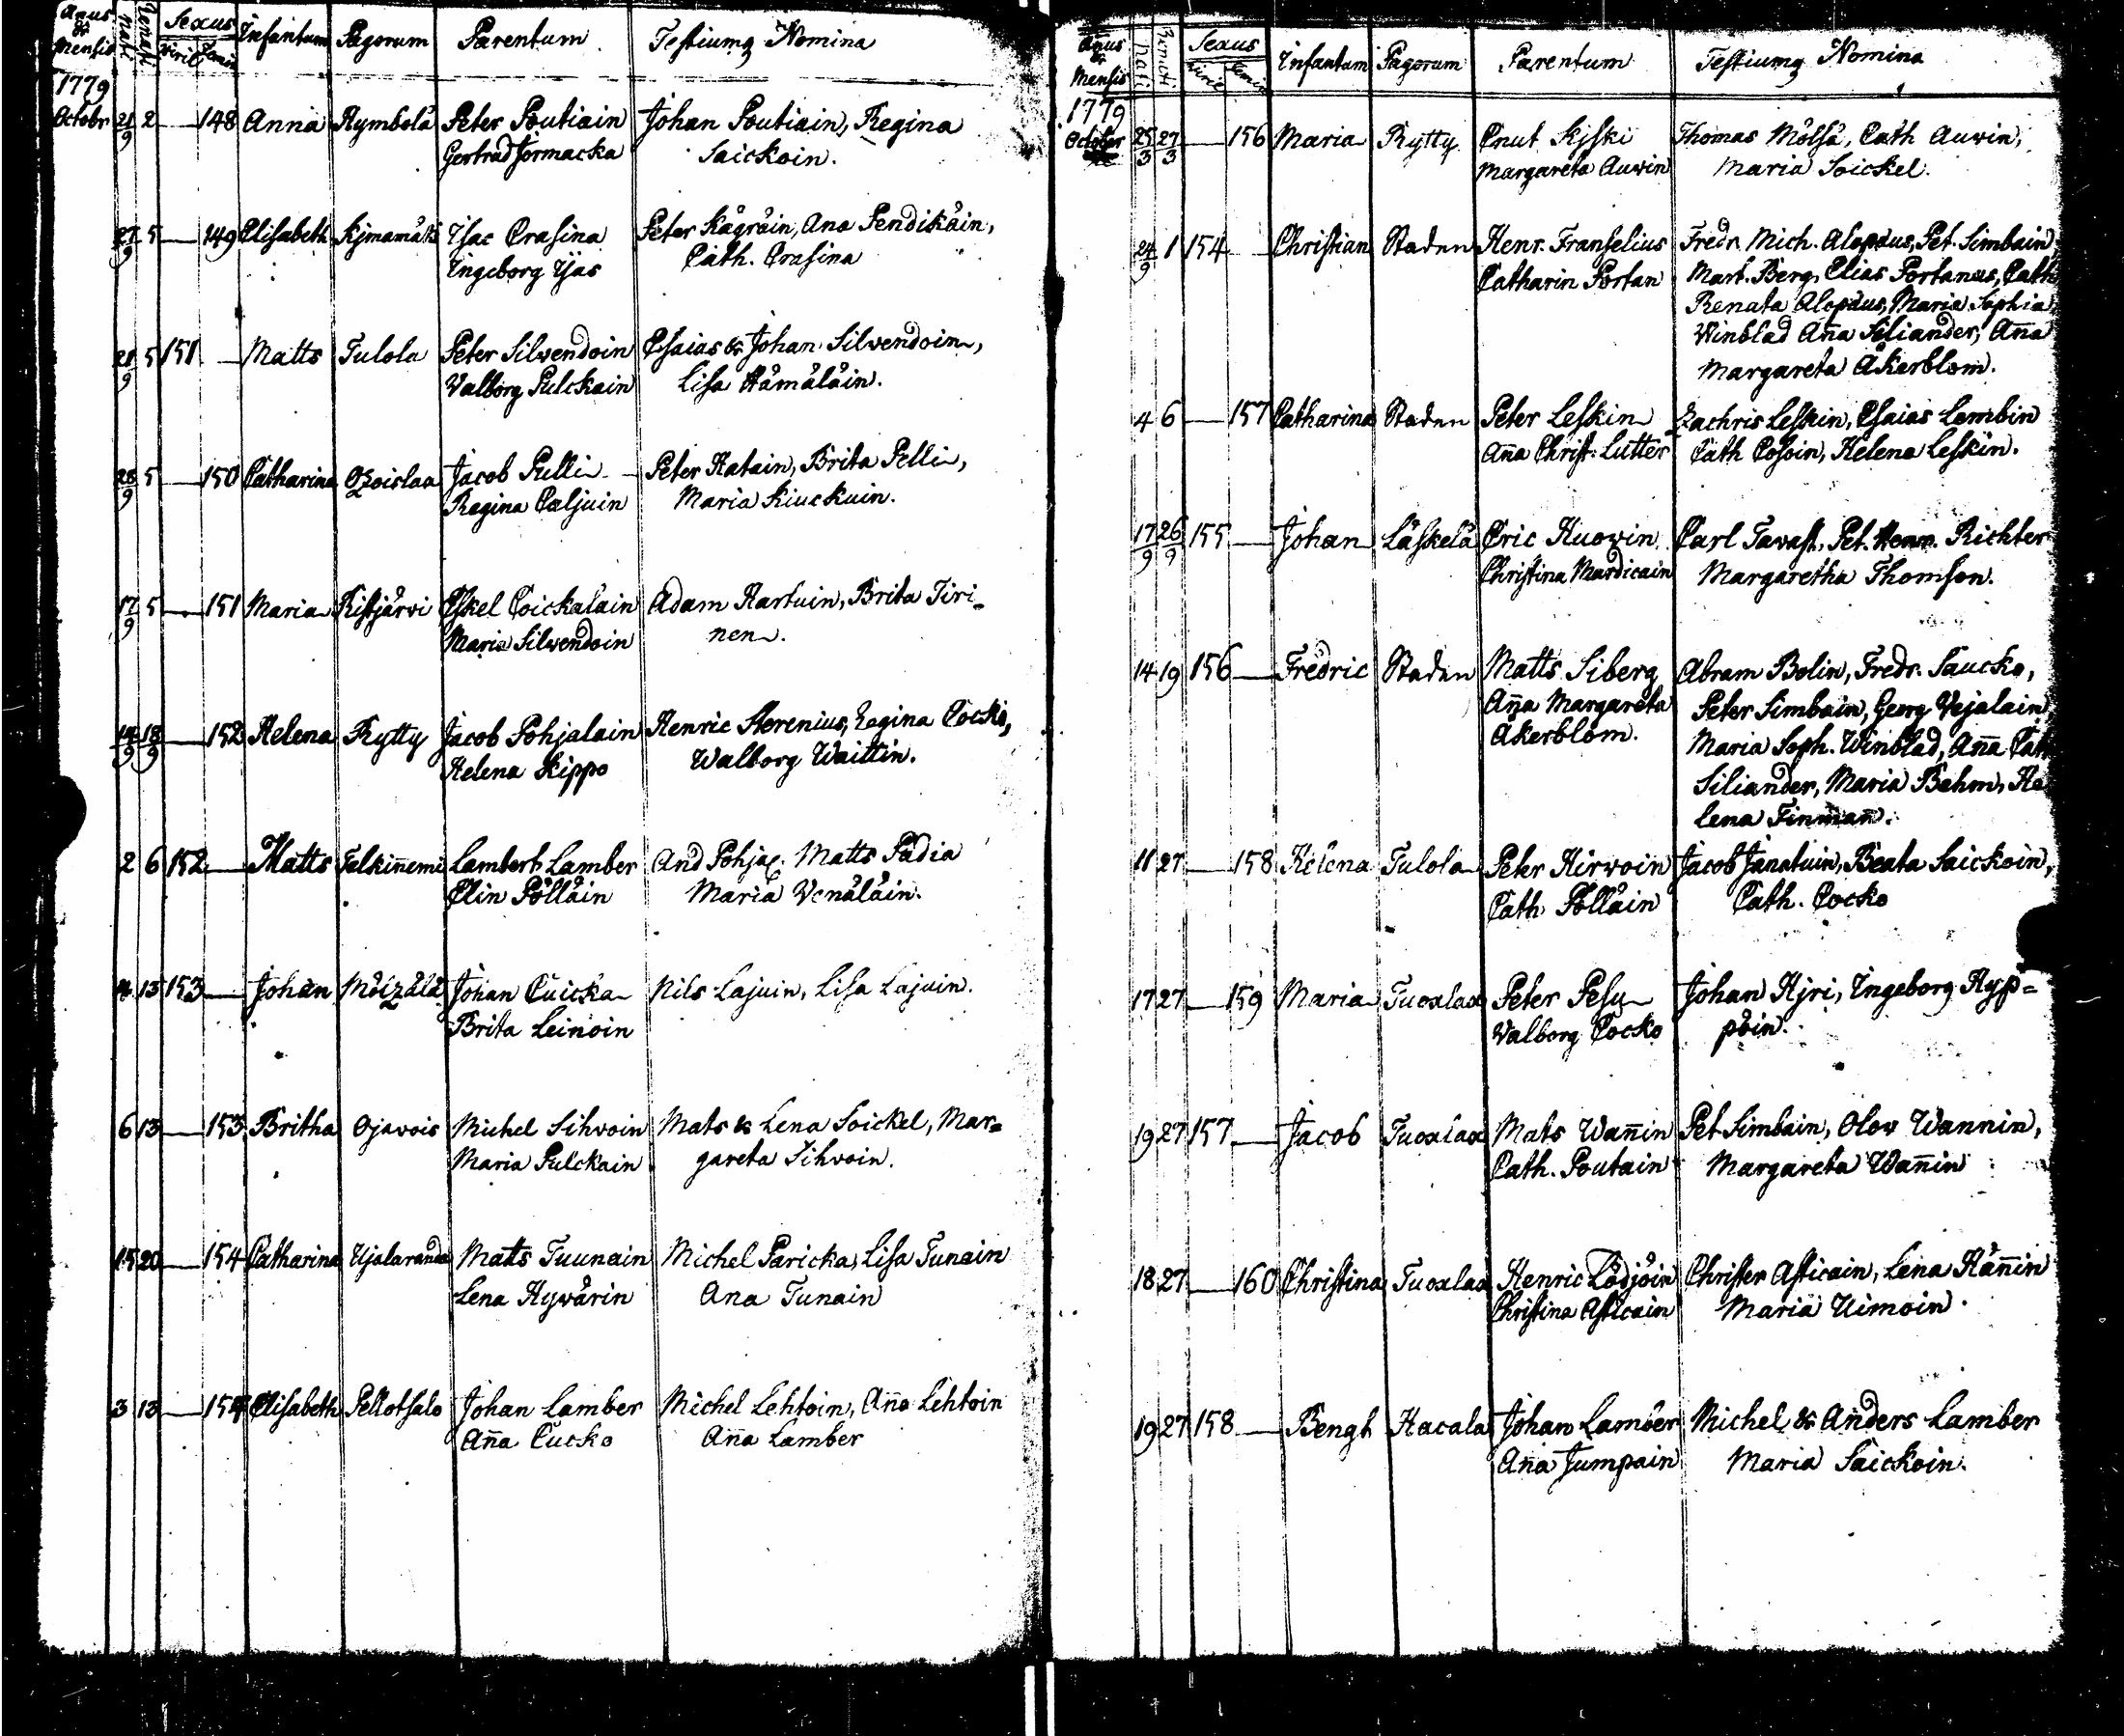 Añus & Mensis Nati Renati Sexus Viril Femin Infantum Pagorum Parentum Testiumq Nomina
1779
Octobr 21/9 2 — 148 Anna Rymbölä Peter Poutiain Johan Poutiain, Regina
Gertrud Jormacka Saickoin.
27/9 5 — 149 Elisabeth Kjmamäki Isac Orasina Peter Kägräin, Ana Pendikäin,
Ingeborg Ijäs Cath. Orasina
21/9 5 151 — Matts Tulola Peter Silvendoin Esaias & Johan Silvendoin,
Valborg Pulckain Lisa Hämäläin.
28/9 5 — 150 Catharina Otzoislax Jacob Pulli Peter Ratain, Brita Pelli,
Regina Caljuin Maria Kiuckuin.
17/9 5 — 151 Maria Ristjärvi Eskel Coickalain Adam Karhuin, Brita Tiri-
Maria Silvendoin nen.
14/9 18/9 — 152 Helena Rytty Jacob Pohjalain Henric Herenius, Regina Cocko,
Helena Kippo Walborg Waittin.
2 6 152 — Matts Telkiñemi Lambert Lamber And Pohjal. Matts Padia
Elin Pölläin Maria Venäläin.
4 13 153 — Johan Mötzälä Johan Cuicka Nils Lajuin, Lisa Lajuin.
Brita Leinoin
6 13 — 153 Britha Ojavois Michel Sihvoin Mats & Lena Soickel, Mar=
Maria Pulckain gareta Sihvoin.
15 20 — 154 Catharina Ujalaranda Matts Tuunain Michel Paricka, Lisa Tunain
Lena Hyvärin Ana Tunain
3 13 — 154 Elisabeth Pellotsalo Johan Lamber Michel Lehtoin, Aña Lehtoin
Aña Cucko Aña Lamber
Añus & Mensis Nati Renati Sexus Viril Femin Infantum Pagorum Parentum Testiumq Nomina
1779
October 25/3 27/3 — 156 Maria Rytty Cnut Kjski Thomas Mölsä, Cath Auvin,
Margareta Auvin Maria Soickel.
24/9 1 154 — Christian Staden Henr. Franselius Fredr. Mich. Alopæus, Pet. Simbain,
Catharin Portan Mart. Berg, Elias Portanus, Cath
Renata Alopæus, Maria Sophia
Winblad Aña Siliander, Aña
Margareta Åkerblom.
4 6 — 157 Catharina Staden Peter Leskin Zachris Leskin, Esaias Lembin
Aña Christ. Lutter Cath Cosoin, Helena Leskin.
17/9 26/9 155 — Johan Läskelä Eric Huovin Carl Tavast, Pet. Henr. Richter
Christina Mardicain Margaretha Thomson.
14 19 156 — Fredric Staden Matts Siberg Abram Bolin, Fredr. Saucko,
Aña Margareta Peter Simbain, Georg Vejalain
Åkerblom. Maria Soph. Winblad, Aña Cath
Siliander, Maria Behm, He
lena Finmañ.
11 27 — 158 Helena Tulola Peter Hirvoin Jacob Janatuin, Beata Saickoin,
Cath. Pölläin Cath. Cocko
17 27 — 159 Maria Tuoxlax Peter Pesu Johan Hjri, Ingeborg Hyp=
Valborg Cocko pöin.
19 27 157 — Jacob Tuoxlax Mats Wañin Pet Simbain, Olov Wannin,
Cath. Poutain Margareta Wañin
18 27 — 160 Christina Tuoxlax Henric Lödjöin Christer Asticain, Lena Häñin
Christina Asticain Maria Uimoin.
19 27 158 — Bengt Hacala Johan Lamber Michel & Anders Lamber
Aña Jumpain Maria Saickoin.